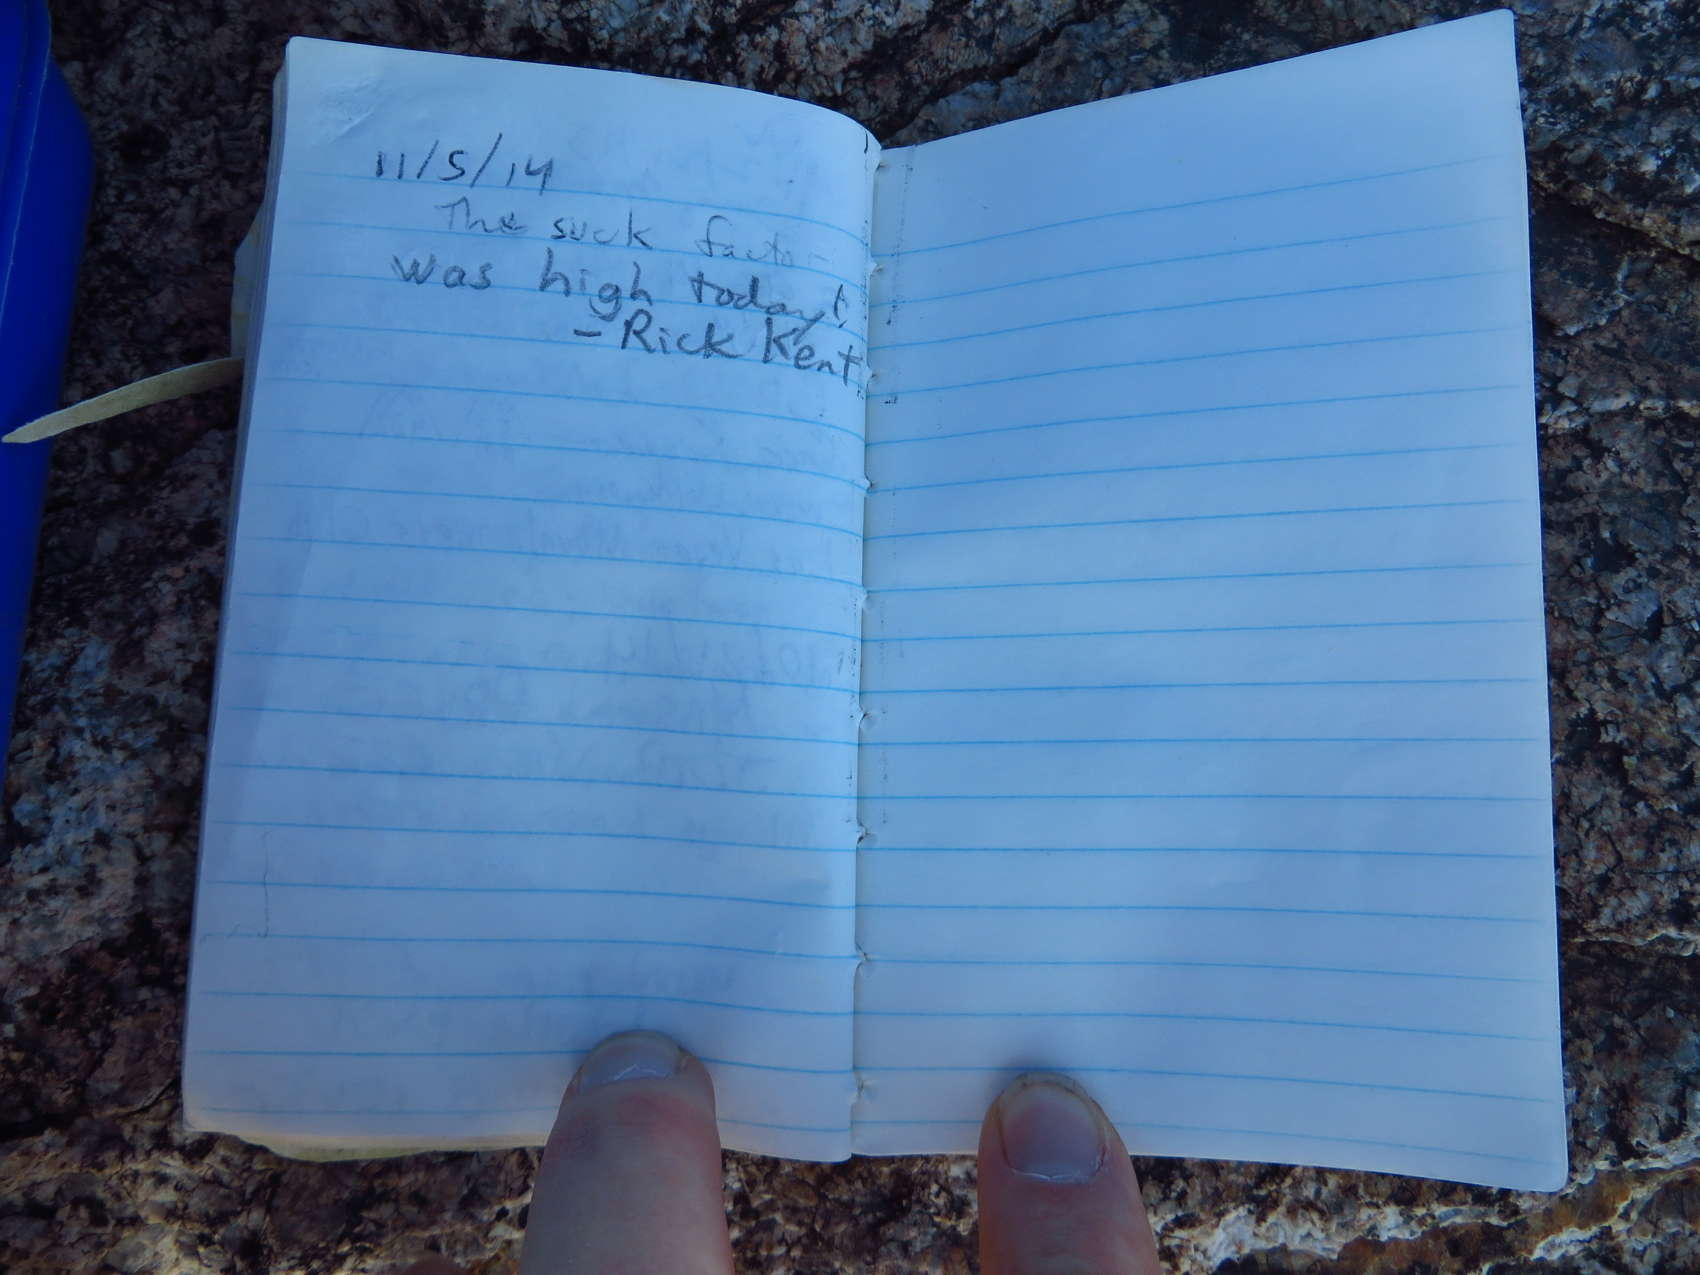 11/5/14
The suck factor
was high today!
- Rick Kent